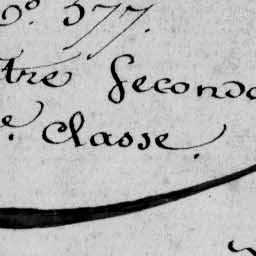 N.º 577.
tre Second
e. Classe.